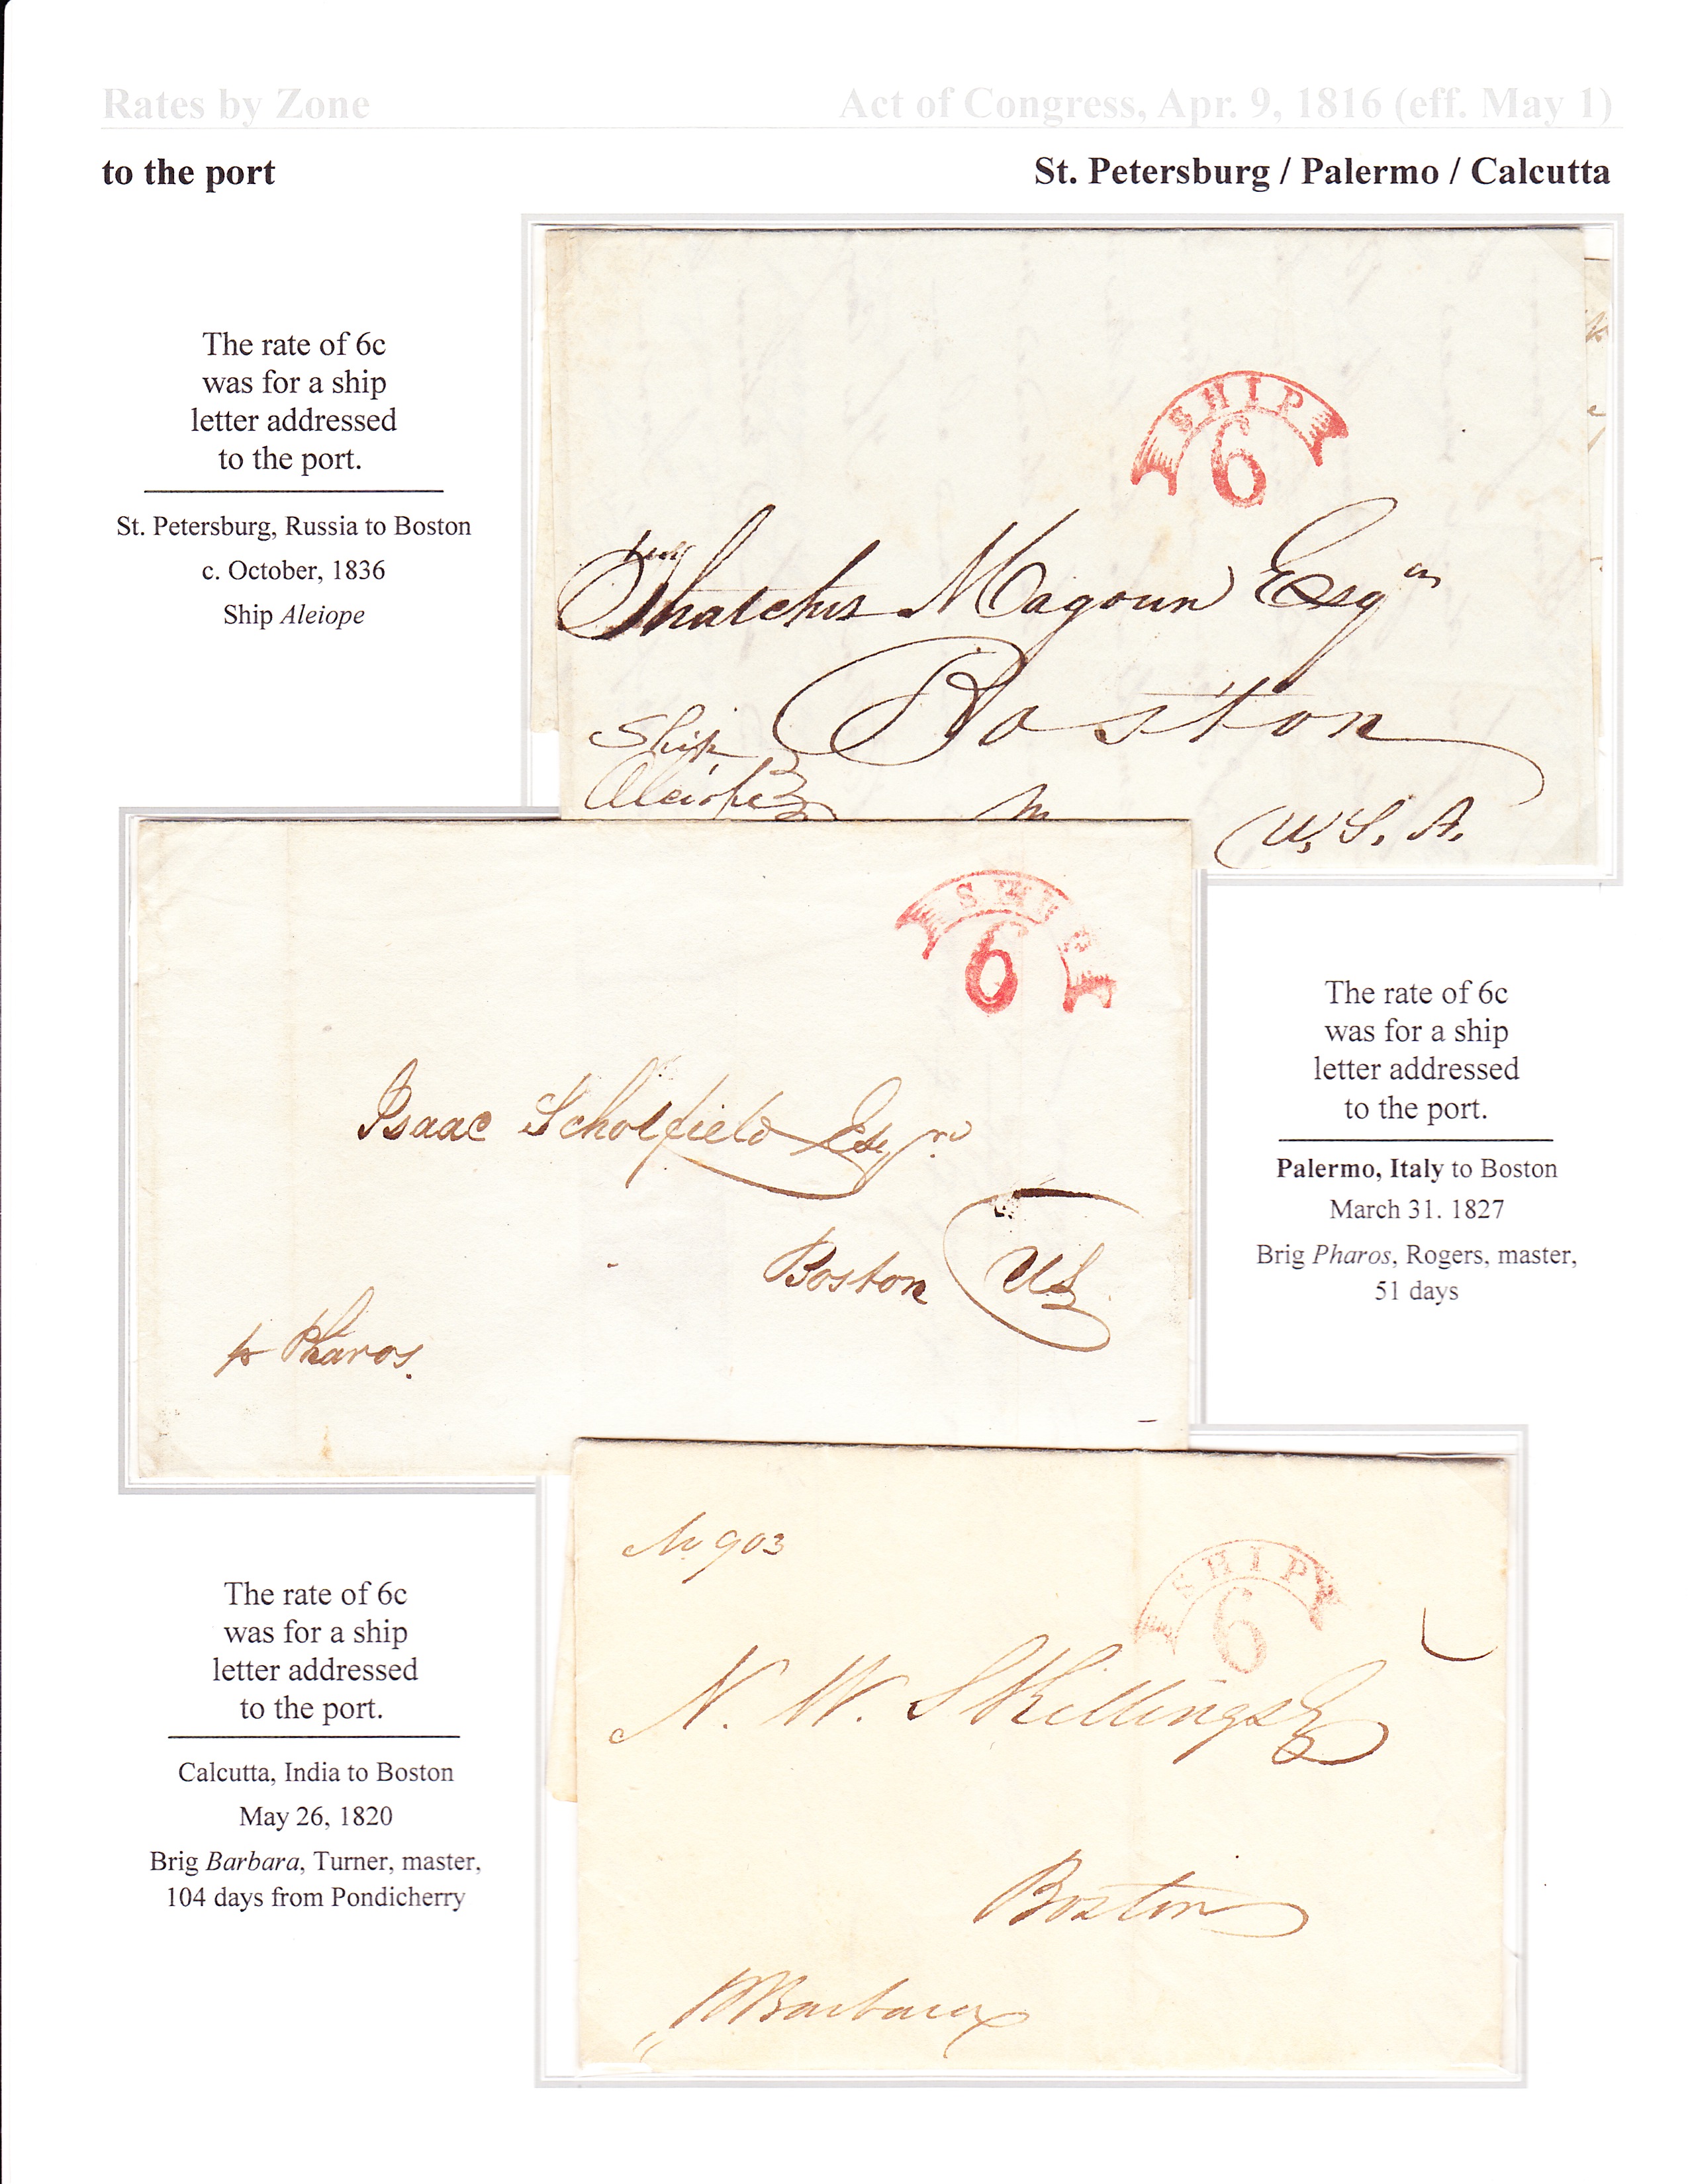 Rates by Zone Act of Congress, Apr. 9, 1816 (eff. May 1)
to the port St. Petersburg / Palermo / Calcutta
The rate of 6c
was for a ship
letter addressed
to the port.
St. Petersburg, Russia to Boston
c. October, 1836
Ship Aleiope
SHIP
6
Thatcher Magoun Esqr
Boston
Ship
Aleiope
U. S. A.
SHIP
6
Isaac Scholfield Esqr
Boston US
pr Pharos.
The rate of 6c
was for a ship
letter addressed
to the port.
Palermo, Italy to Boston
March 31. 1827
Brig Pharos, Rogers, master,
51 days
The rate of 6c
was for a ship
letter addressed
to the port.
Calcutta, India to Boston
May 26, 1820
Brig Barbara, Turner, master,
104 days from Pondicherry
903
SHIP
6
N. W. Skillings
Boston
Barbara